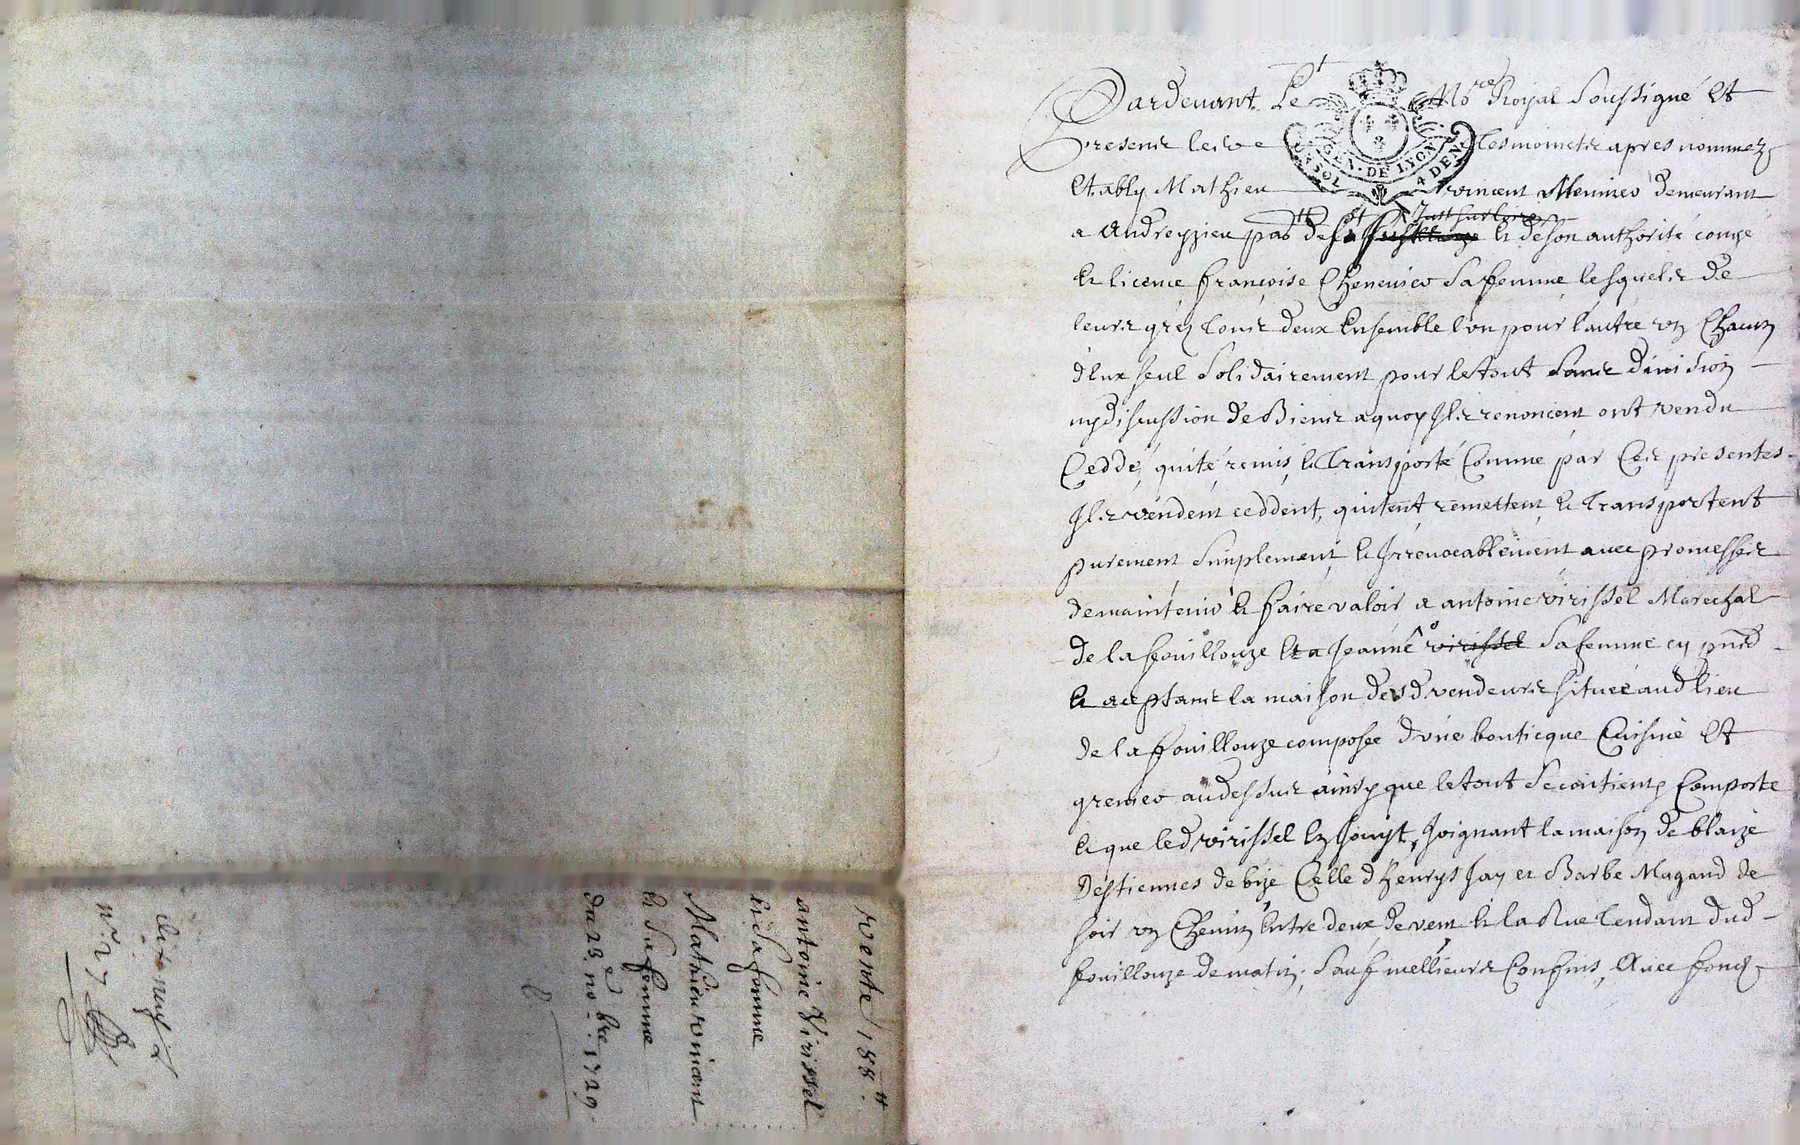 vente 188.tt
antoine Virissel
et sa femme
Mathieu vincent
et sa femme
du 23.e no.bre 1729.
n.o 27
Pardevant Le No.re Royal Soussigné Et
presents les tesmointz apres nommez
Etably Mathieu vincent Meunier demeurant
a Andreyzieu par de St Just sur loire et de son authorité congé
et licence françoise Chenevier sa femme lesquelz de
leurs grez tous deux Ensemble l'un pour l'autre un Chacun
d'Eux seul Solidairement pour le tout sans division
ny discussion de Biens a quoy Ils renoncent ont vendu
Ceddé, quité, remis, et Transporté Comme par Ces presentes
Ils vendent ceddent, quitent, remettent, et Transportent
purement Simplement et Irrevocablement avec promesses
de maintenir et faire valoir a antoine virissel Maréchal
de la fouillouze Et a Jeanne virissel sa femme cy pnts
et aceptans la maison desd vendeurs située aud lieu
de la fouillouze composée d'une bouticque Cuisine Et
grenier audessus ainsy que le tout se contient, Comporte
et que led virissel En Jouyt, Joignant la maison de blaize
destiennes de bize Celle d'henrys Jay et Barbe Magand de
soir un Chemin Entre deux de vent et la Rue tendant dud
fouillouze de matin, sauf mellieurs Confins, Avec fondz